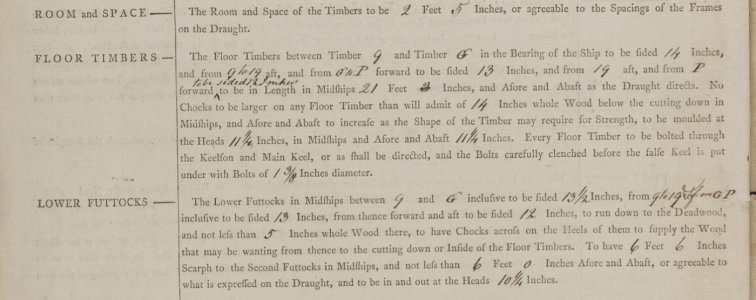 ROOM and SPACE — The Room and Space of the Timbers to be 2 Feet 5 Inches, or agreeable to the Spacings of the Frames
on the Draught.
FLOOR TIMBERS — The Floor Timbers between Timber 9 and Timber G in the Bearing of the Ship to be ſided 14 Inches,
and from 9 to 19 aft, and from G to P forward to be ſided 13 Inches, and from 19 aft, and from P
to be sided 12 Inches
forward ^ to be in Length in Midſhips 21 Feet 3 Inches, and Afore and Abaft as the Draught directs. No
Chocks to be larger on any Floor Timber than will admit of 14 Inches whole Wood below the cutting down in
Midſhips, and Afore and Abaft to increaſe as the Shape of the Timber may require for Strength, to be moulded at
the Heads 11 1/4 Inches, in Midſhips and Afore and Abaft 11 1/4 Inches. Every Floor Timber to be bolted through
the Keelſon and Main Keel, or as ſhall be directed, and the Bolts carefully clenched before the falſe Keel is put
under with Bolts of 1 3/8 Inches diameter.
LOWER FUTTOCKS — The Lower Futtocks in Midſhips between 9 and G incluſive to be ſided 13 1/2 Inches, from 9 to 19 & from G P
incluſive to be ſided 13 Inches, from thence forward and aft to be ſided 12 Inches, to run down to the Deadwood,
and not leſs than 5 Inches whole Wood there, to have Chocks acroſs on the Heels of them to ſupply the Wood
that may be wanting from thence to the cutting down or Inſide of the Floor Timbers. To have 6 Feet 6 Inches
Scarph to the Second Futtocks in Midſhips, and not leſs than 6 Feet 0 Inches Afore and Abaft, or agreeable to
what is expreſſed on the Draught, and to be in and out at the Heads 10 3/4 Inches.